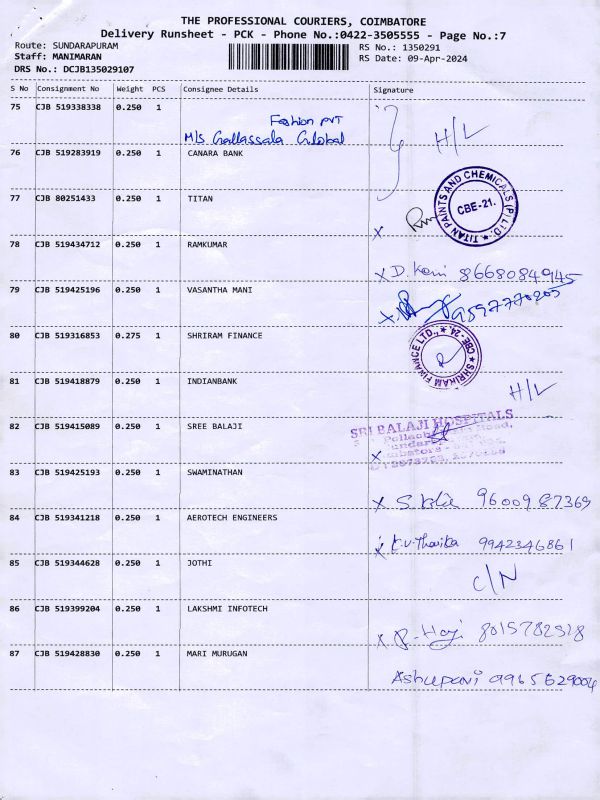 THE PROFESSIONAL COURIERS, COIMBATORE
Delivery Runsheet - PCK - Phone No.:0422-3505555 - Page No.:7
Route: SUNDARAPURAM
RS No.: 1350291
Staff: MANIMARAN
RS Date: 09-Apr-2024
DRS No.: DCJB135029107
S No Consignment No Weight PCS Consignee Details Signature
75 CJB 519338338 0.250 1
Fashion PVT
M/S Gallassala Global
H/L
76 CJB 519283919 0.250 1 CANARA BANK
77 CJB 80251433 0.250 1 TITAN
TITAN PAINTS AND CHEMICALS (P) LTD.
CBE-21.
x
78 CJB 519434712 0.250 1 RAMKUMAR
x D. 8668084945
79 CJB 519425196 0.250 1 VASANTHA MANI
x 9597770205
80 CJB 519316853 0.275 1 SHRIRAM FINANCE
SHRIRAM FINANCE LTD., CBE-24
81 CJB 519418879 0.250 1 INDIANBANK
H/L
82 CJB 519415089 0.250 1 SREE BALAJI
SRI BALAJI HOSPITALS
x
83 CJB 519425193 0.250 1 SWAMINATHAN
x S. 9600987369
84 CJB 519341218 0.250 1 AEROTECH ENGINEERS
x 9942346861
85 CJB 519344628 0.250 1 JOTHI
C/N
86 CJB 519399204 0.250 1 LAKSHMI INFOTECH
x P. 8015782518
87 CJB 519428830 0.250 1 MARI MURUGAN
9965629004